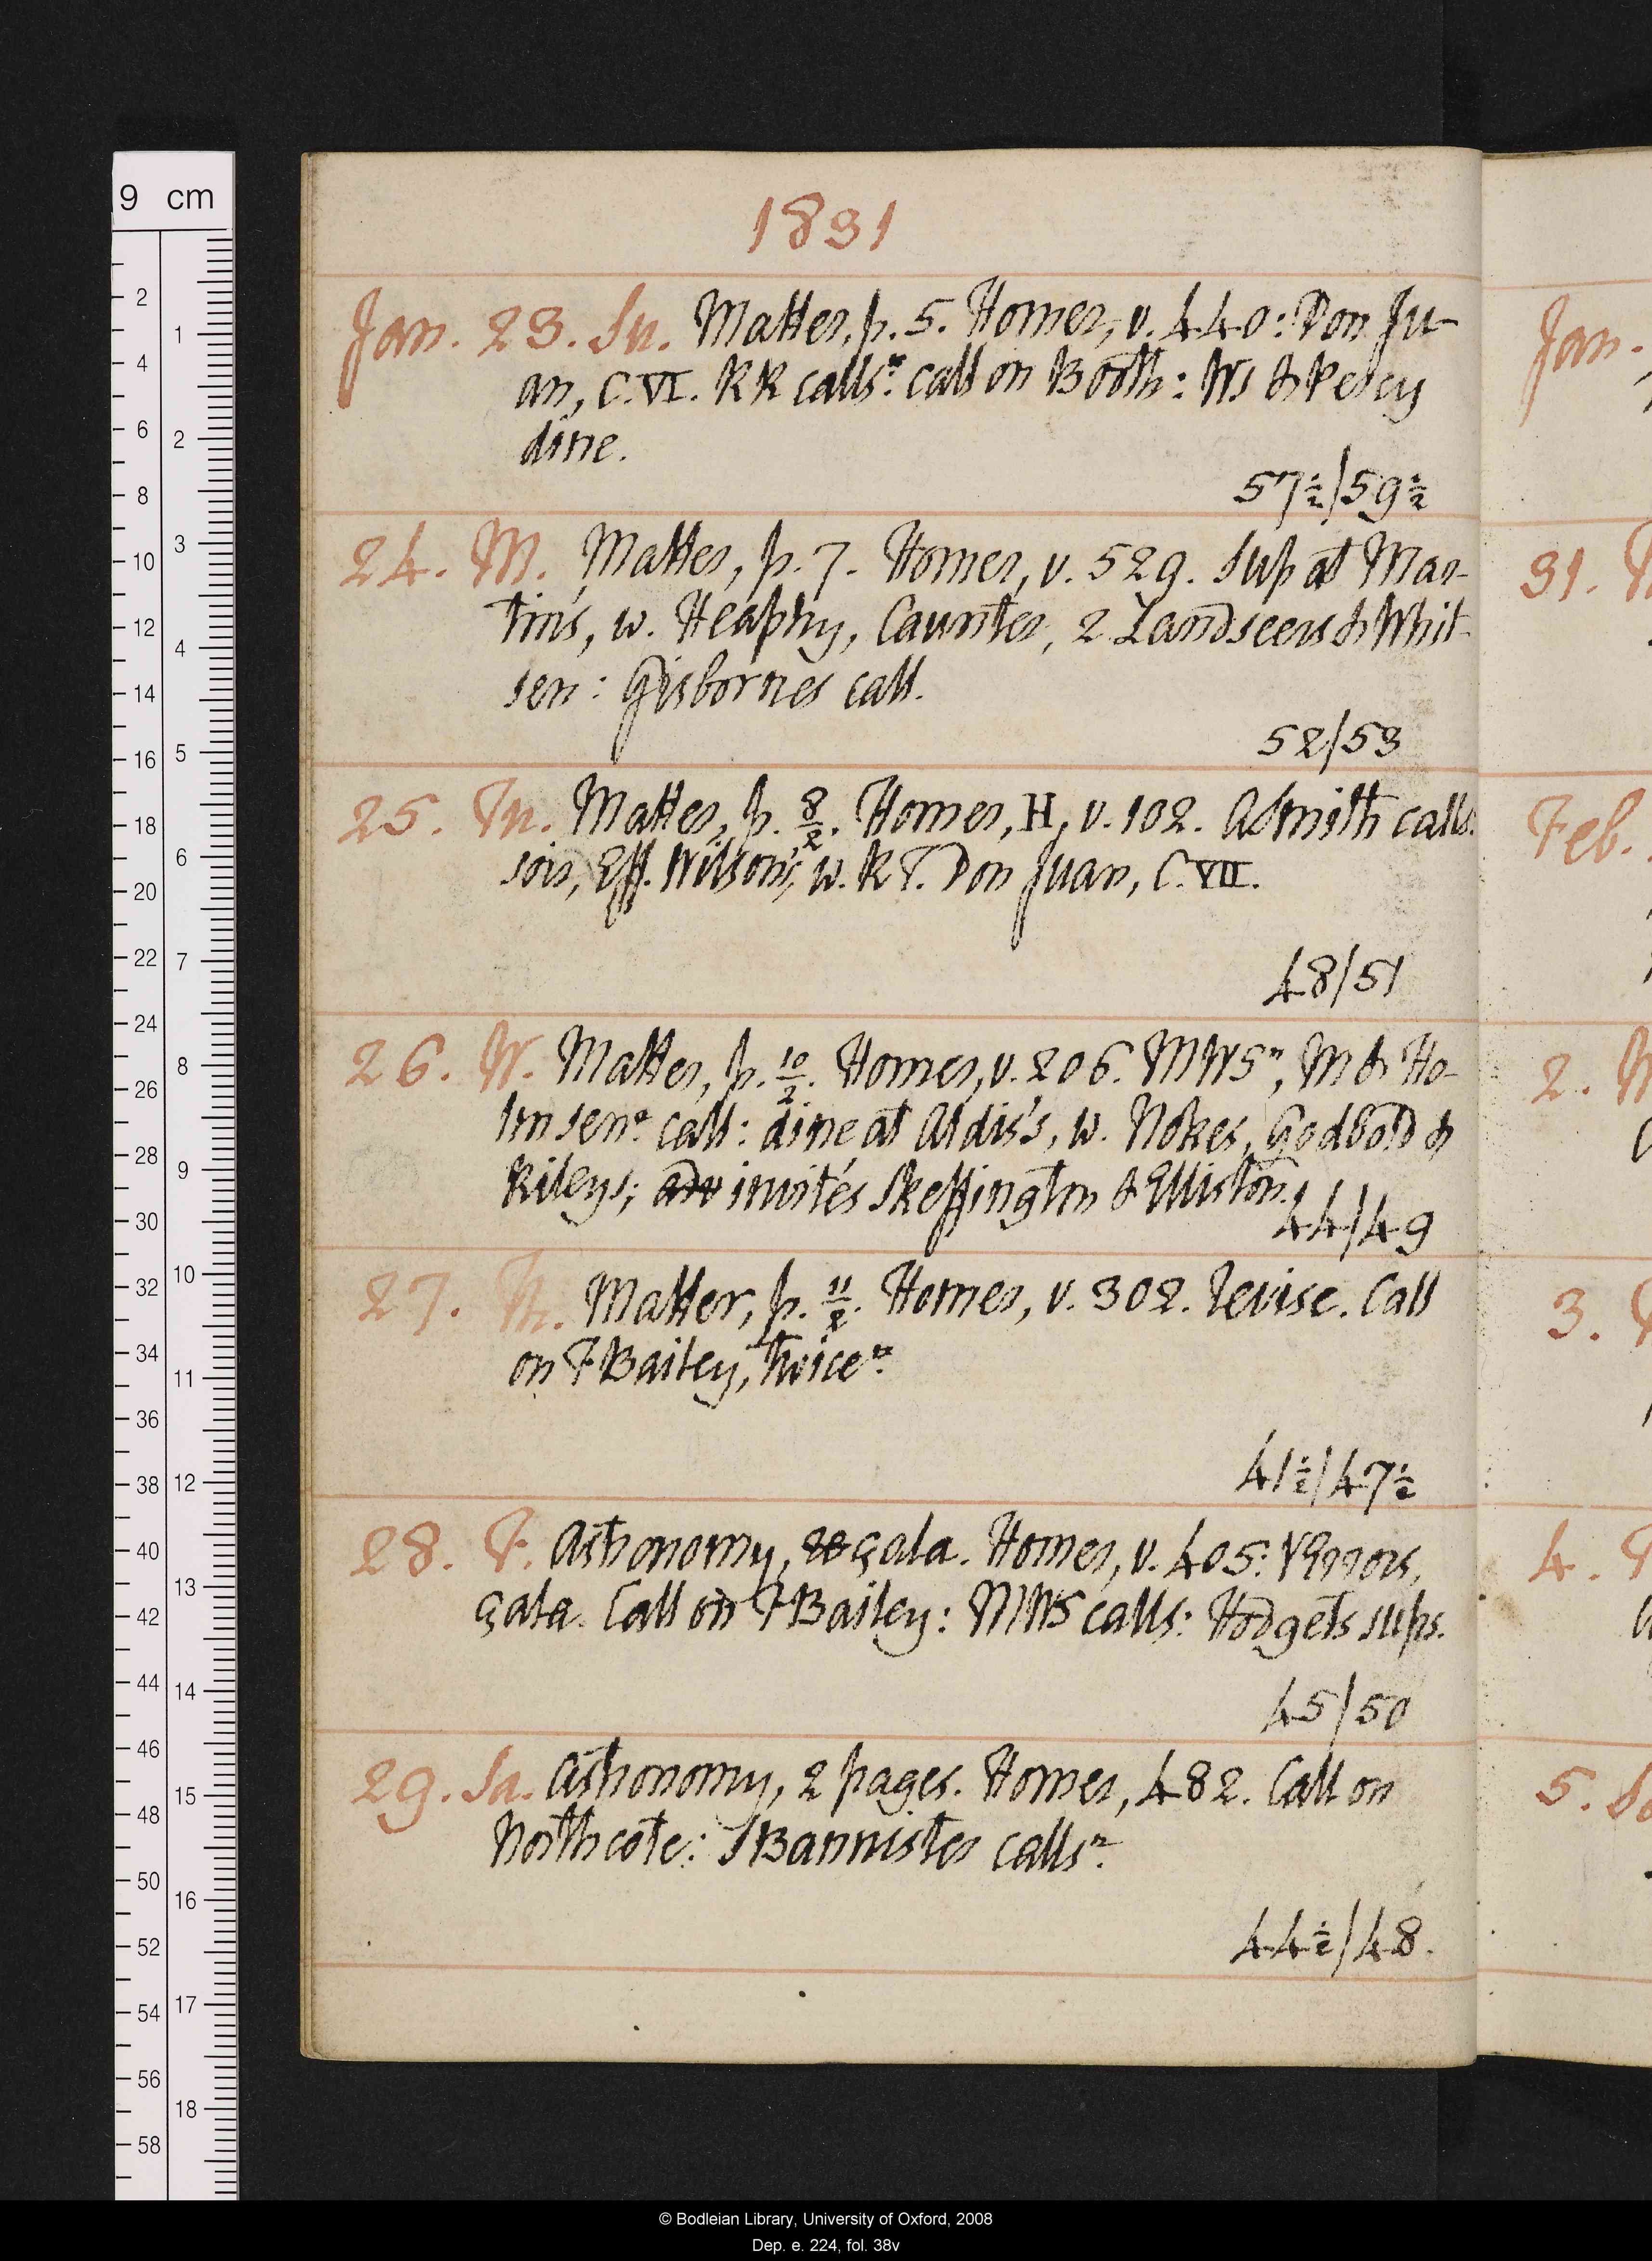 1831
Jan. 23. Su. Matter, p. 5. Homer, v. 440: Don Ju-
an, C. VI. RR calls n: call on Booth: Ws & Percy
dine.
57½/59½
24. M. Matter, p. 7. Homer, v. 529. Sup at Mar-
tin's, w. Heaphy, Caunter, 2 Landseers & Whit-
sen: Gisbornes call.
52/53
25. Tu. Matter, p. 8/2. Homer, H, v. 102. A Smith calls.
soir, Eff. Wilson's, w. RT. Don Juan, C. VII.
48/51
26. W. Matter, p. 10/2. Homer, v. 206. MWS n, M & Ho-
lm sen n call: dine at Aldis's, w. Nokes, Godbold &
Rileys; adv invités Skeffington & Elliston.
44/49
27. Th. Matter, p. 11/2. Homer, v. 302. Revise. Call
on F Bailey, twice n.
41½/47½
28. F. Astronomy, çala. Homer, v. 405: YErrors,
çala. Call on F Bailey: MWS calls: Hodgets sups.
45/50
29. Sa. Astronomy, 2 pages. Homer, 482. Call on
Northcote: S Bannister calls n.
44½/48.
Jan.
31.
Feb.
2.
3.
4.
5.
9 cm
2
4
6
8
10
12
14
16
18
20
22
24
26
28
30
32
34
36
38
40
42
44
46
48
50
52
54
56
58
1
2
3
4
5
6
7
8
9
10
11
12
13
14
15
16
17
18
© Bodleian Library, University of Oxford, 2008
Dep. e. 224, fol. 38v